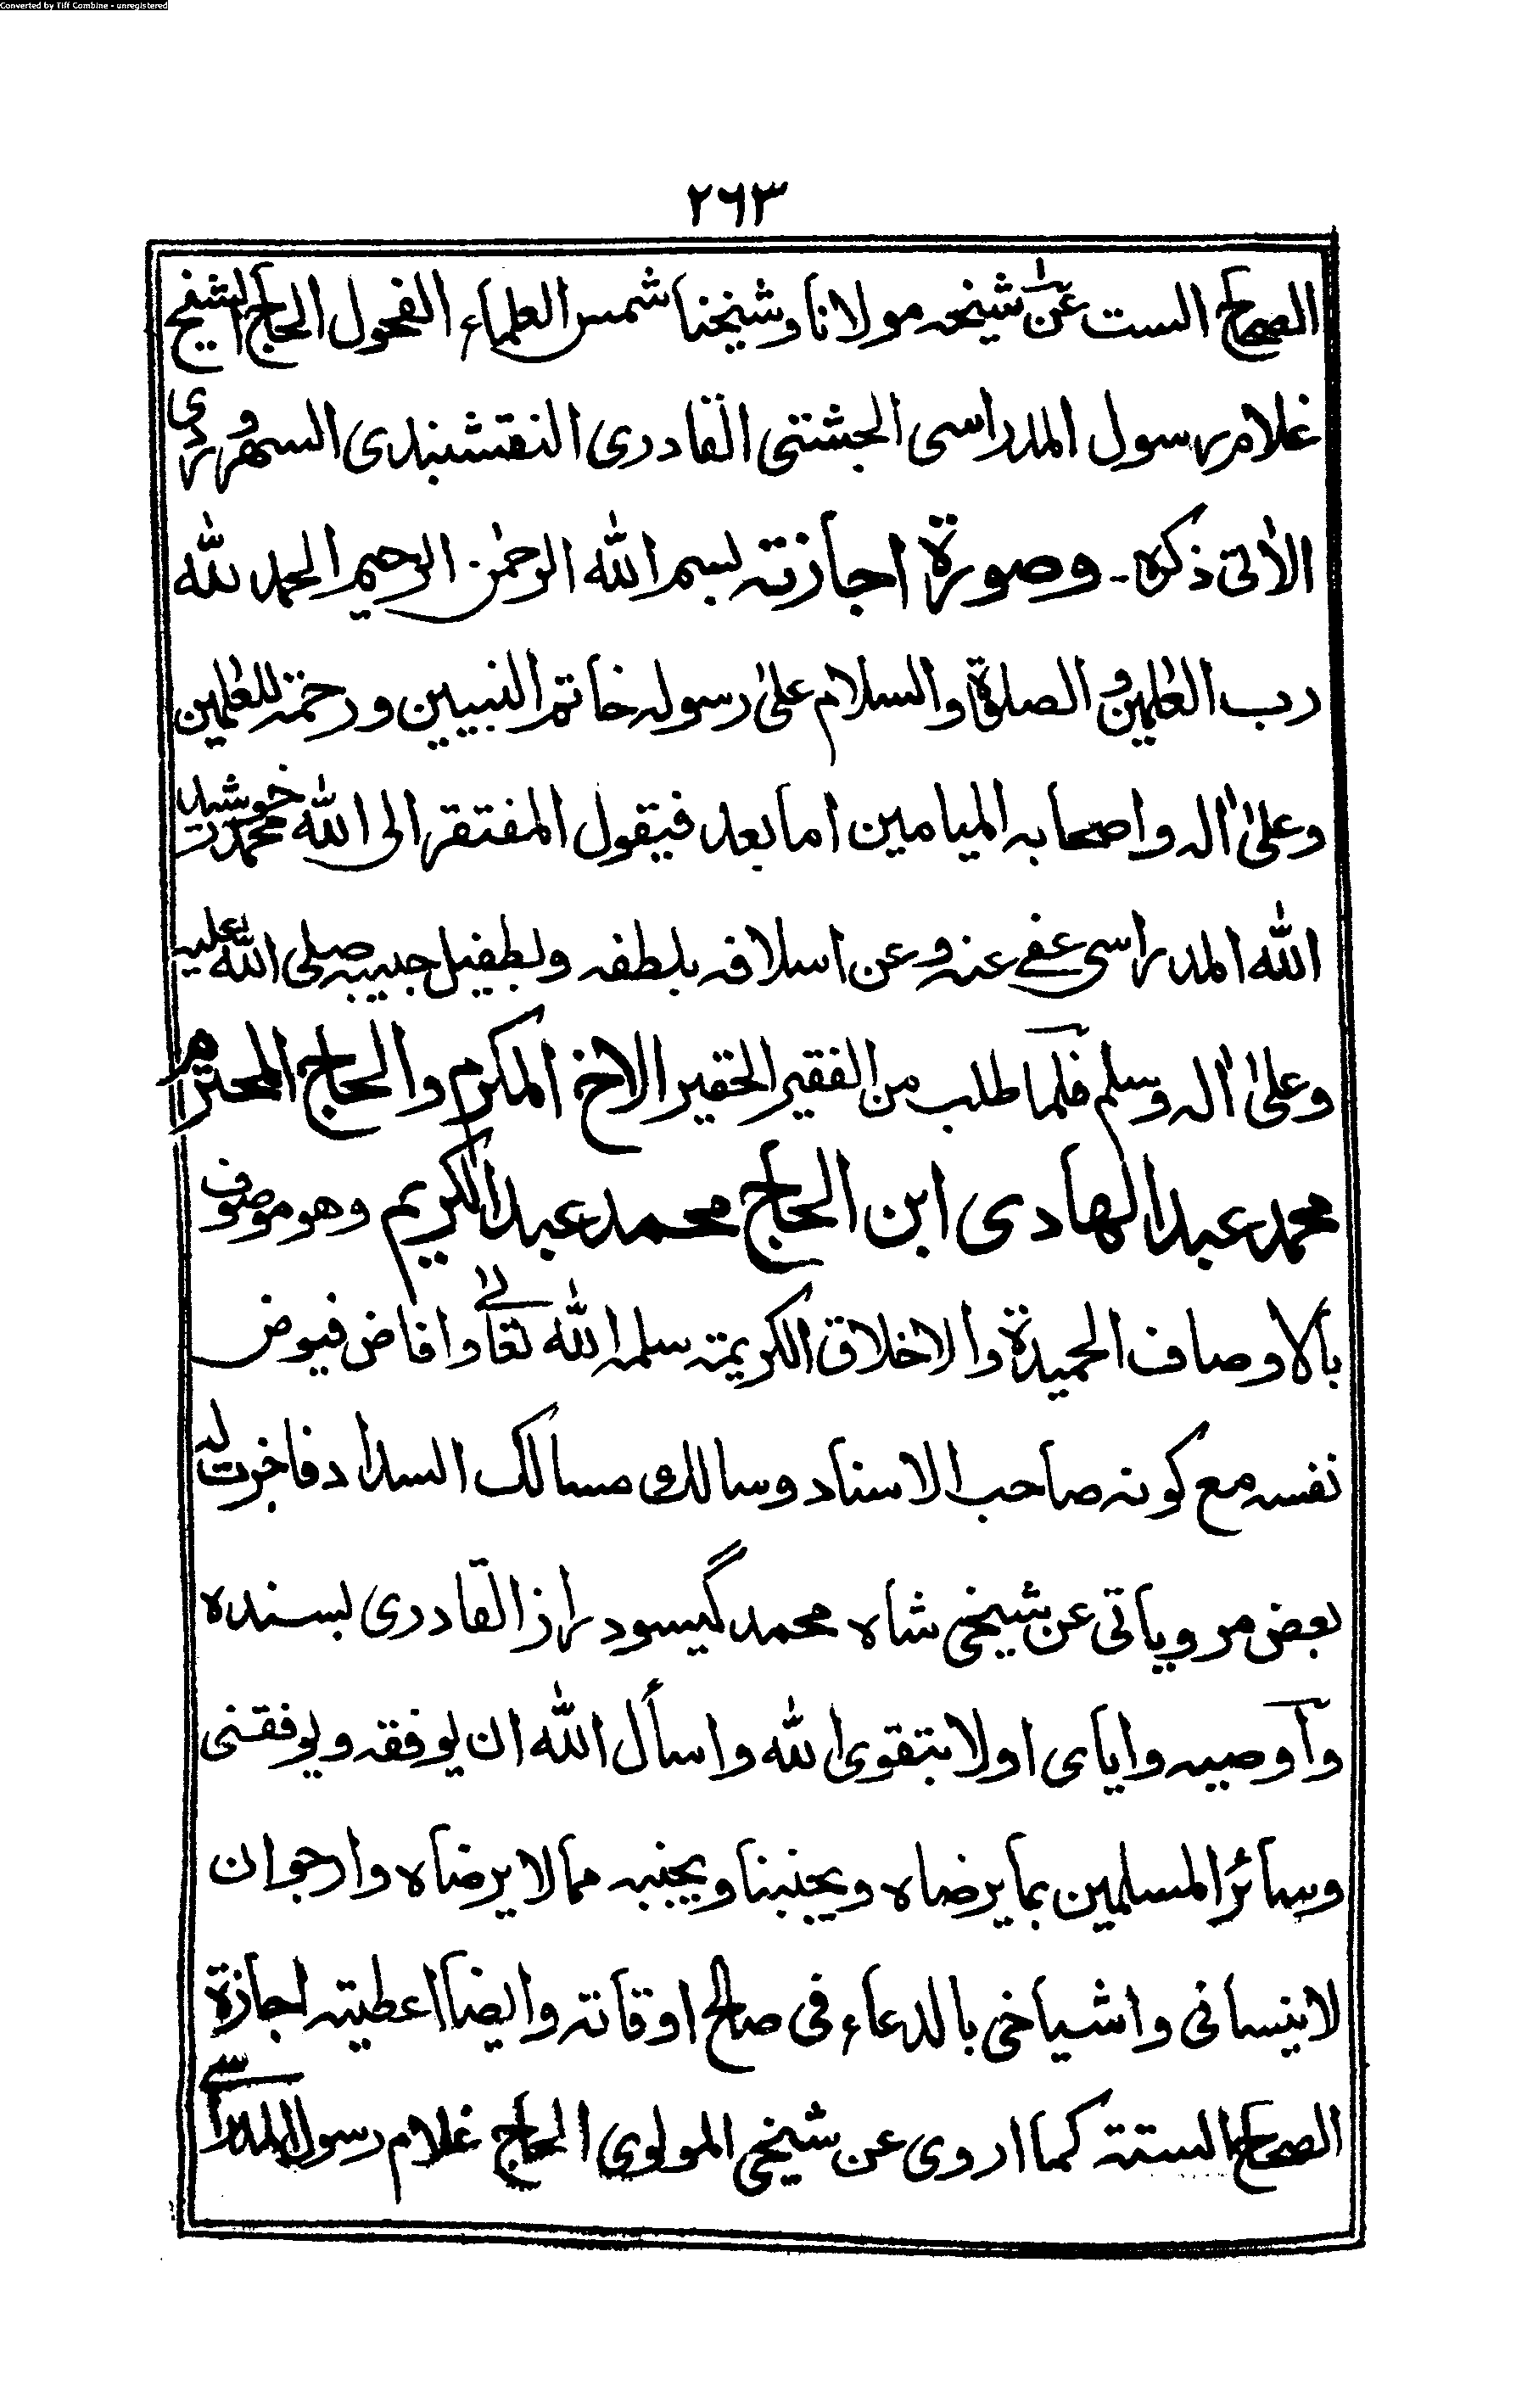 Converted by Tiff Combine - unregistered
٢٦٣
الصحاح الست عن شيخه مولانا وشيخنا شمس العلماء الفحول الحاج الشيخ
غلام رسول المدراسى الجشتى القادرى النقشبندى السهروردى
الآتى ذكره - وصورة اجازته بسم الله الرحمٰن الرحيم الحمد لله
رب العٰلمين و الصلوة والسلام علىٰ رسوله خاتم النبيين ورحمة للعٰلمين
وعلىٰ اٰله واصحابه الميامين اما بعد فيقول المفتقر الى الله محمد خورشيد
الله المدراسى عفى عنه وعن اسلافه بلطفه وبطفيل حبيبه صلى الله عليه
وعلىٰ اٰله وسلم فلما طلب من الفقير الحقير الاخ المكرم والحاج المحترم
محمد عبد الهادى ابن الحاج محمد عبد الكريم وهو موصوف
بالاوصاف الحميدة والاخلاق الكريمة سلمه الله تعالى وافاض فيوض
نفسه مع كونه صاحب الاسناد وسالك مسالك السداد فاجزت له
بعض مروياتى عن شيخى شاه محمد گيسودراز القادرى بسنده
وآوصيه واياى اولا بتقوى الله واسأل الله ان يوفقه ويوفقنى
وسائر المسلمين بما يرضاه ويجنبنا ويجنبه مما لا يرضاه وارجوان
لا ينسانى واشياخى بالدعاء فى صالح اوقاته وايضا اعطيته اجازة
الصحاح الستة كما اروى عن شيخى المولوى الحاج غلام رسول المدراسى